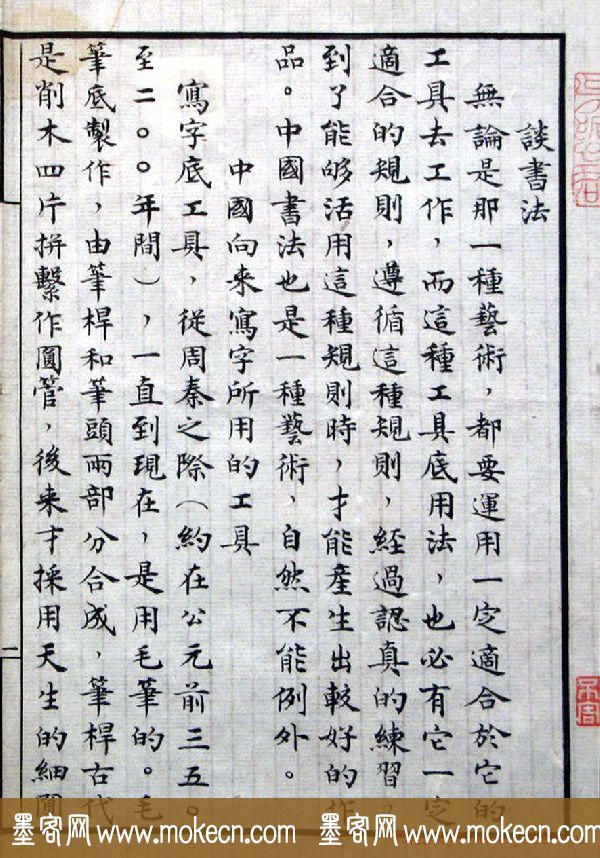 談書法
無論是那一種藝術，都要運用一定適合於它的
工具去工作，而這種工具底用法，也必有它一定
適合的規則，遵循這種規則，經過認真的練習，
到了能够活用這種規則時，才能產生出較好的作
品。中國書法也是一種藝術，自然不能例外。
中國向来寫字所用的工具
寫字底工具，從周秦之際（約在公元前三五〇
至二〇〇年間），一直到現在，是用毛筆的。毛
筆底製作，由筆桿和筆頭兩部分合成，筆桿古代
是削木四片拼繫作圓管，後来才採用天生的細圓
二
墨客网 www.mokecn.com 墨客网 www.mokecn.com